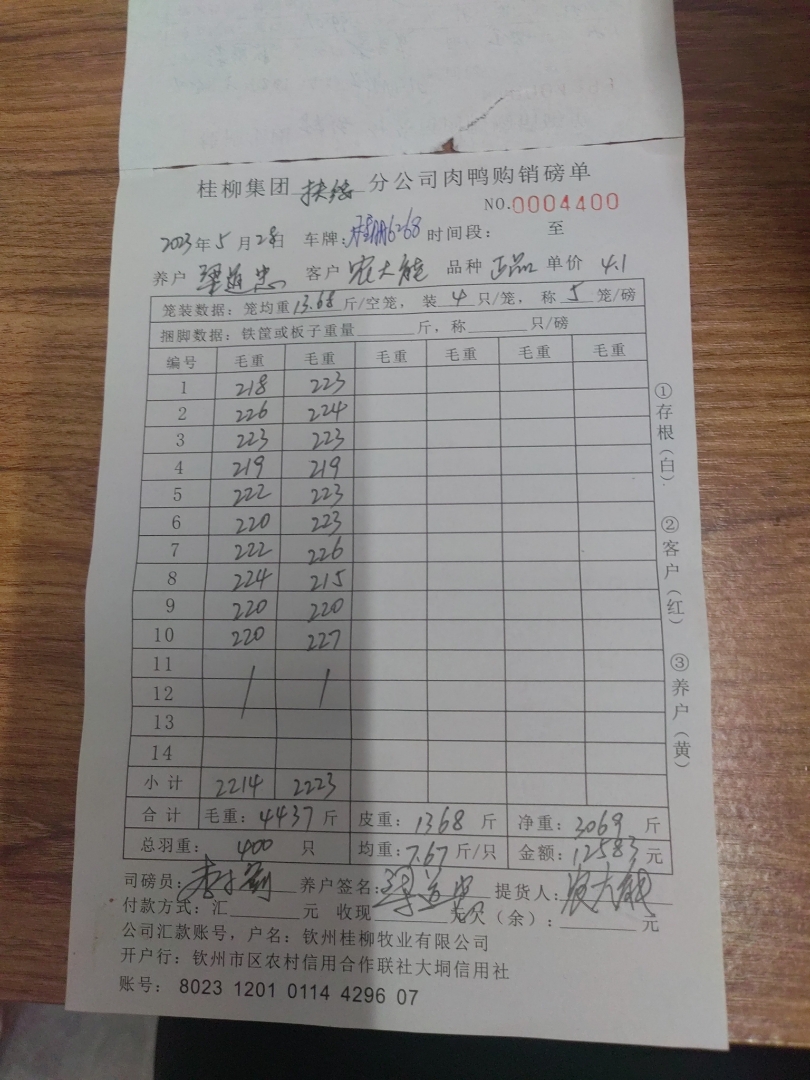 桂柳集团 扶绥 分公司肉鸭购销磅单
NO.0004400
2023年5月28日 车牌: 6268 时间段: 至
养户 梁道忠 客户 农大能 品种 正品 单价 4.1
笼装数据: 笼均重13.68斤/空笼, 装4只/笼, 称5笼/磅
捆脚数据: 铁筐或板子重量 斤, 称 只/磅
编号 毛重 毛重 毛重 毛重 毛重 毛重
1 218 223
2 226 224
3 223 223
4 219 219
5 222 223
6 220 223
7 222 226
8 224 215
9 220 220
10 220 227
11
12
13
14
小计 2214 2223
合计 毛重: 4437斤 皮重: 1368斤 净重: 3069斤
总羽重: 400只 均重: 7.67斤/只 金额: 12583元
司磅员: 养户签名: 梁道忠 提货人: 农大能
付款方式: 汇 元 收现 元欠(余): 元
公司汇款账号, 户名: 钦州桂柳牧业有限公司
开户行: 钦州市区农村信用合作联社大垌信用社
账号: 8023 1201 0114 4296 07
①存根(白)
②客户(红)
③养户(黄)